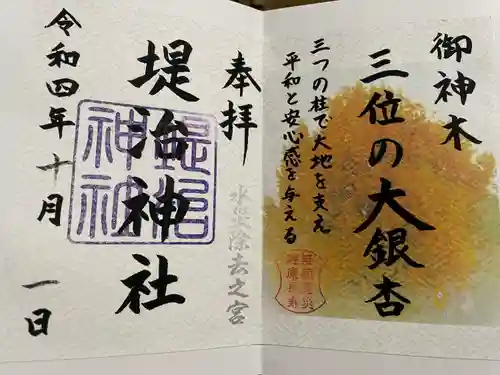 御神木
三位の大銀杏
三つの柱で大地を支え
平和と安心感を与える
奉拝
堤治神社
水災除去之宮
令和四年十月
一日